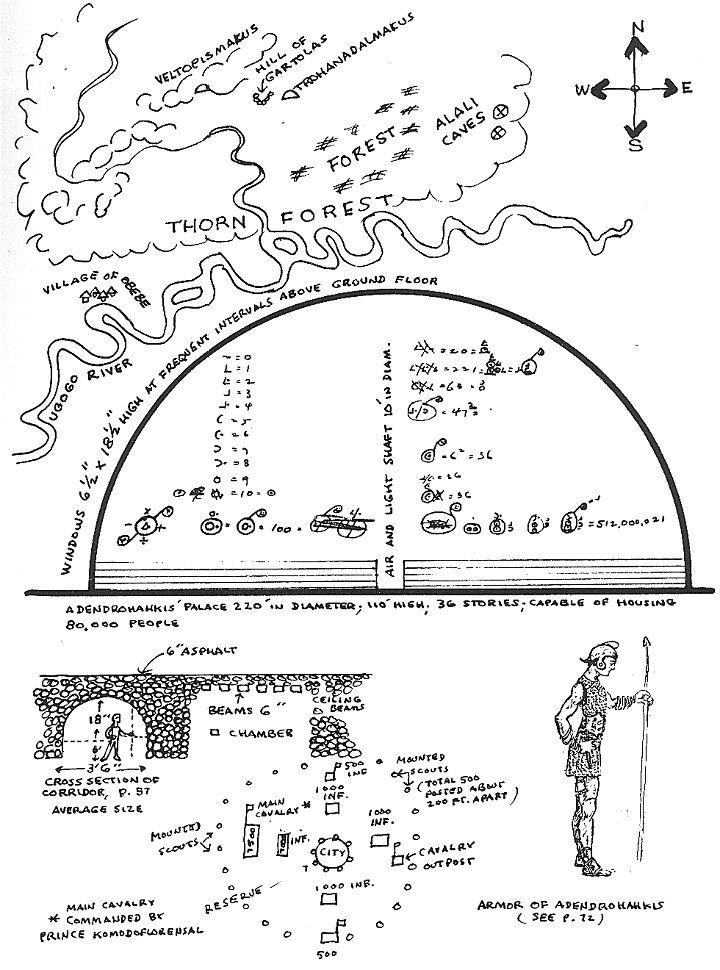 N
W E
S
VELTOPISMAKUS
HILL OF
GARTOLAS
TROHANADALMAKUS
FOREST
ALALI
CAVES
THORN FOREST
VILLAGE OF OBEBE
UGOGO RIVER
WINDOWS 6½" X 18½" HIGH AT FREQUENT INTERVALS ABOVE GROUND FLOOR
- = 0
L = 1
= 2
= 3
= 4
C = 5
= 6
= 7
= 8
O = 9
= 10 =
= 100 =
AIR AND LIGHT SHAFT 10' IN DIAM.
= 20 =
= 221 =
= 63 =
= 47²
= 6² = 36
= 36
= 36
= 512,000,021
ADENDROHAHKIS' PALACE 220' IN DIAMETER; 110' HIGH; 36 STORIES; CAPABLE OF HOUSING
80,000 PEOPLE
6" ASPHALT
18"
6"
3'6"
BEAMS 6"
CEILING
BEAMS
CHAMBER
CROSS SECTION OF
CORRIDOR, P. 97
AVERAGE SIZE
500
INF
1000
INF.
MOUNTED
SCOUTS
(TOTAL 500
POSTED ABOUT
200 FT. APART)
MAIN
CAVALRY *
7500
INF.
1000
INF.
MOUNTED
SCOUTS
CITY
CAVALRY
OUTPOST
RESERVE
1000 INF.
500
MAIN CAVALRY
* COMMANDED BY
PRINCE KOMODOFLORENSAL
ARMOR OF ADENDROHAHKIS
(SEE P. 72)